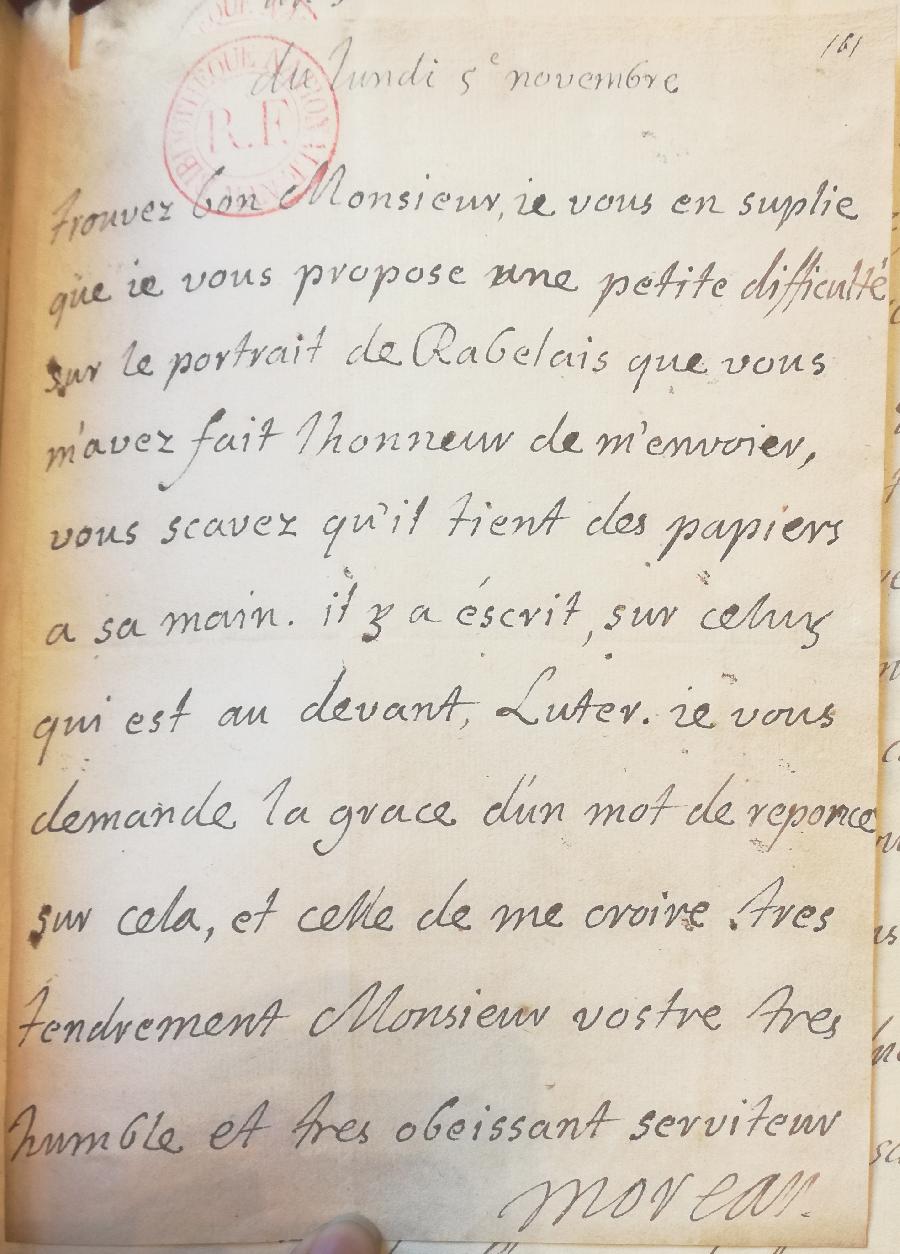 161
du lundi 5e novembre
BIBLIOTHEQUE NATIONALE
R.F.
trouvez bon Monsieur, ie vous en suplie
que ie vous propose une petite difficulté
sur le portrait de Rabelais que vous
m'avez fait lhonneur de m'envoier,
vous scavez qu'il tient des papiers
a sa main. il y a éscrit, sur celuy
qui est au devant, Luter. ie vous
demande la grace d'un mot de reponce
sur cela, et celle de me croire tres
tendrement Monsieur vostre tres
humble et tres obeissant serviteur
moreau.